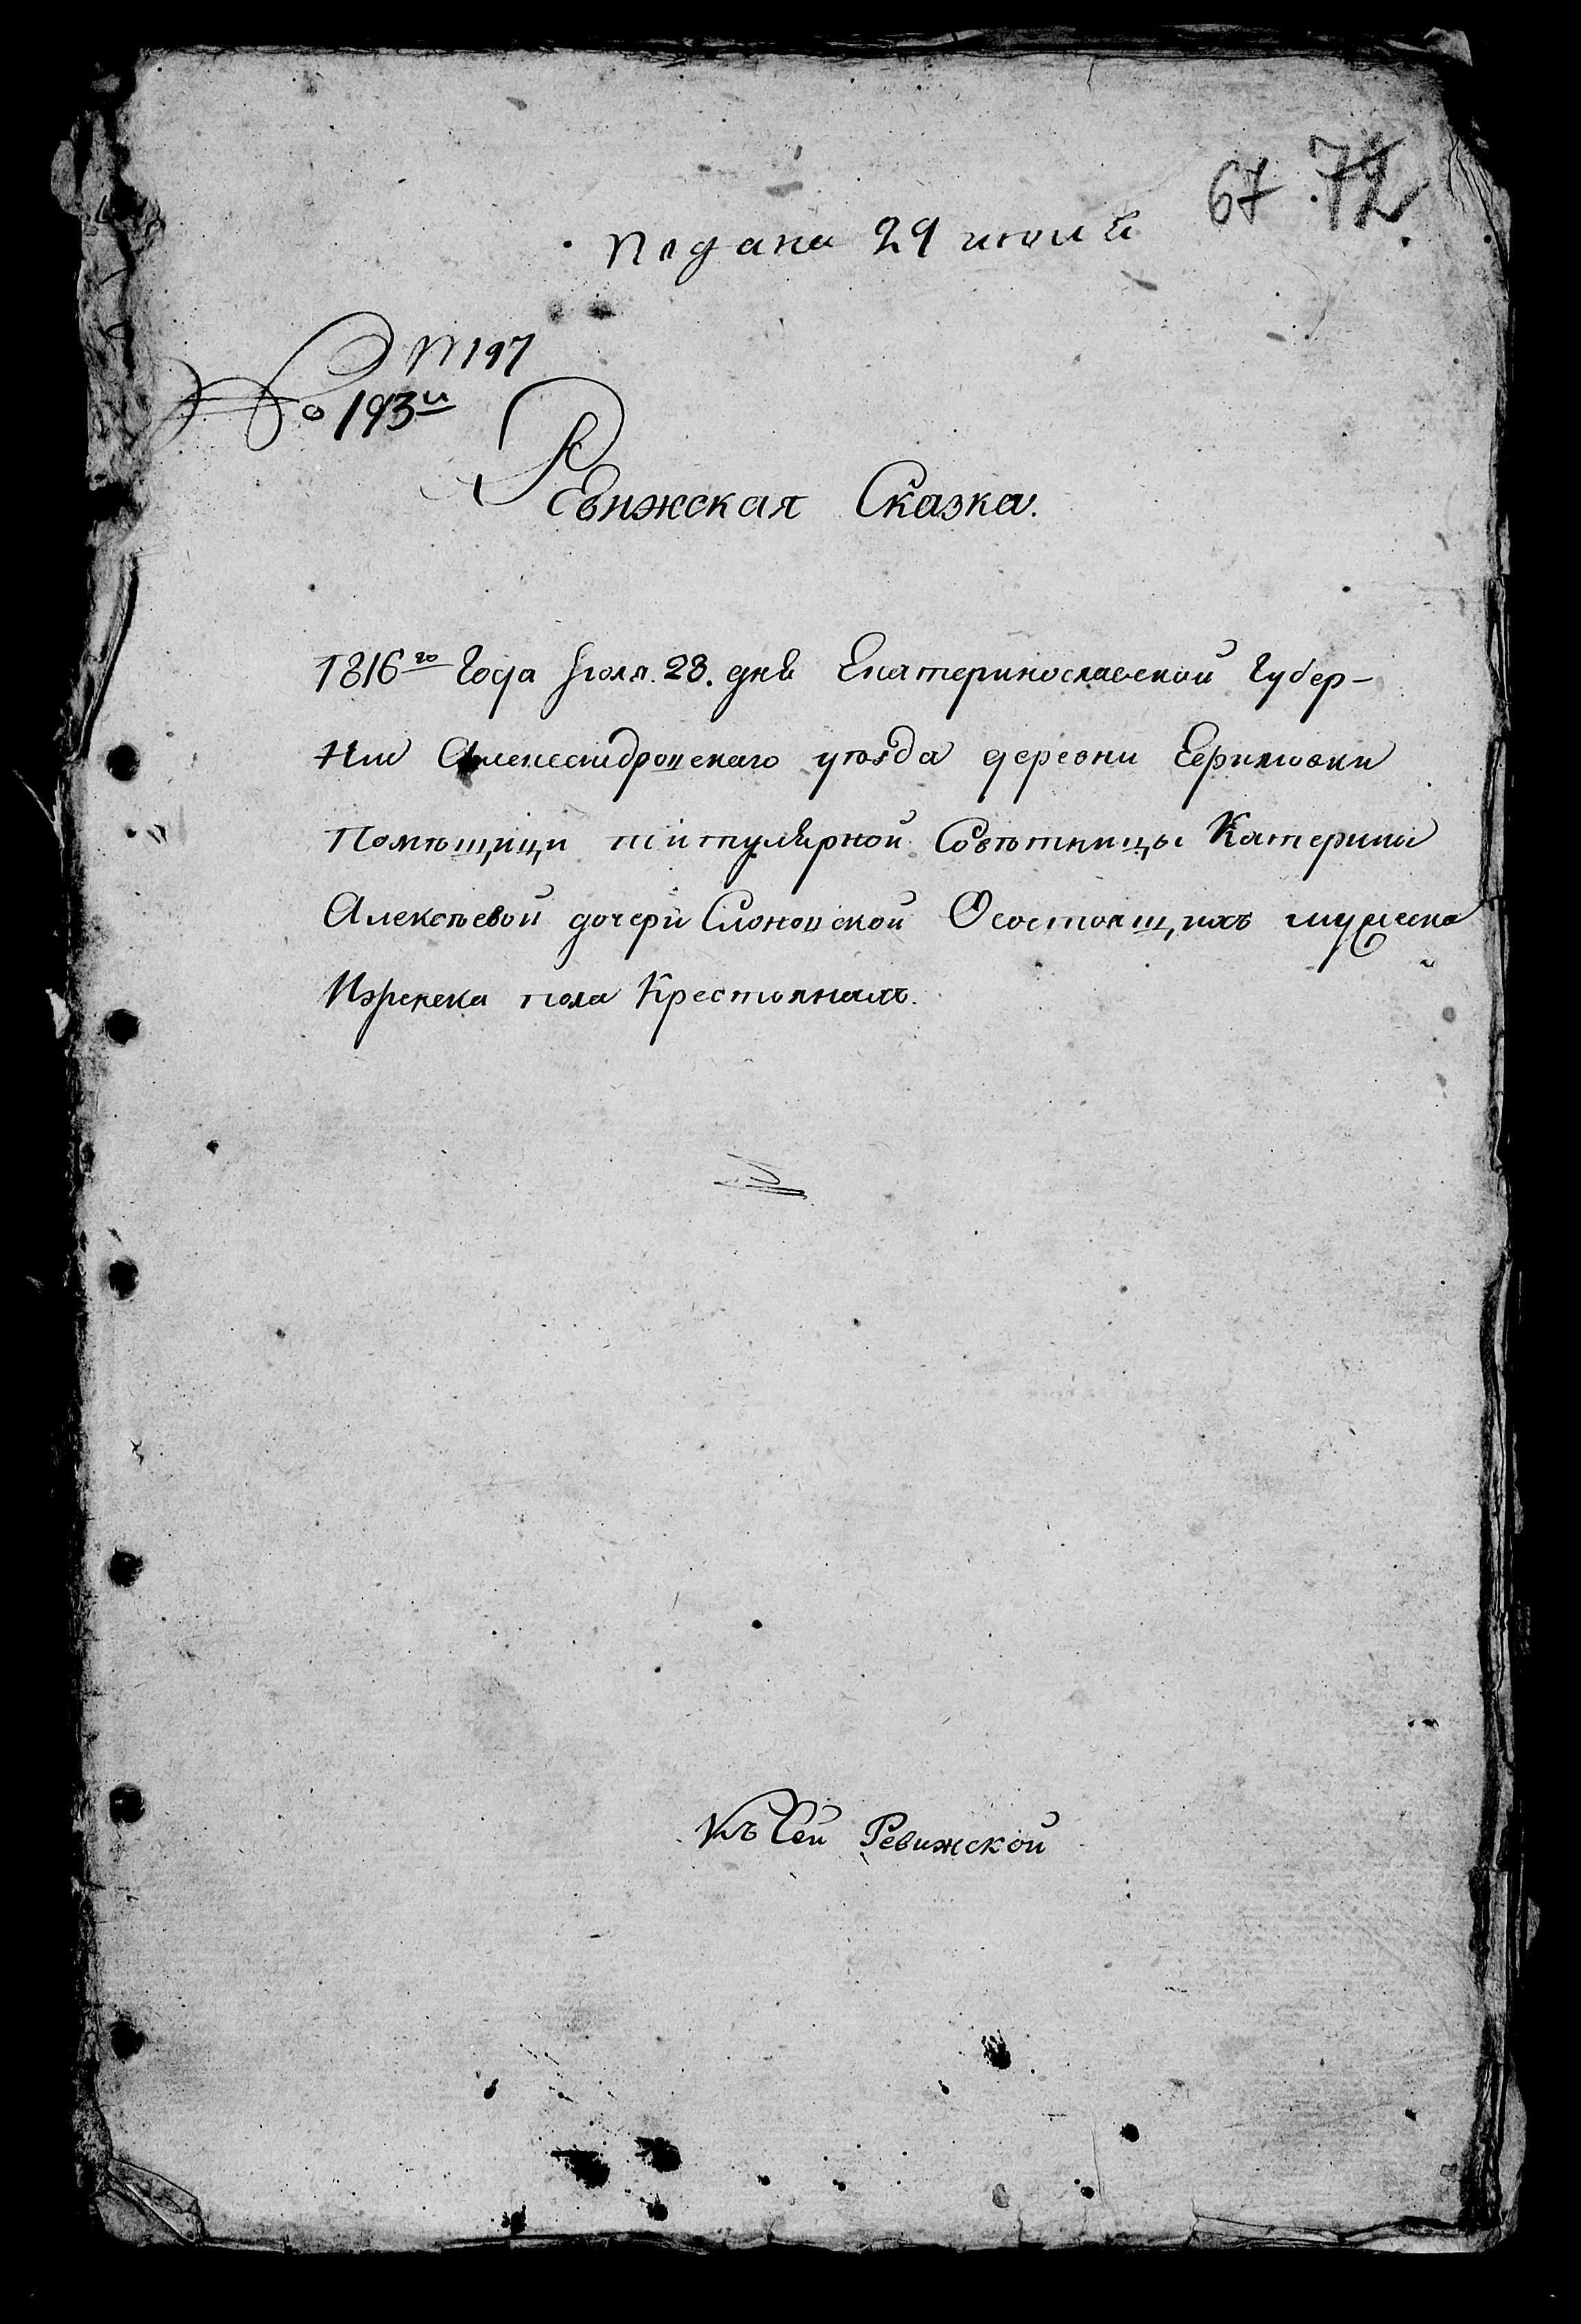 67 72
подана 29 июля
№ 197
По 193й
Ревижская Сказка.
1816го Года Июля. 28. дня Екатеринославской Губер-
Нии Александровскаго уѣзда деревни Ефимовки
Помѣщици титулярной Совѣтницы Катерины
Алексѣевой дочери Слоновской Осостоящихъ мужеска
Иженска пола Крестьянахъ.
Къ Сей Ревижской